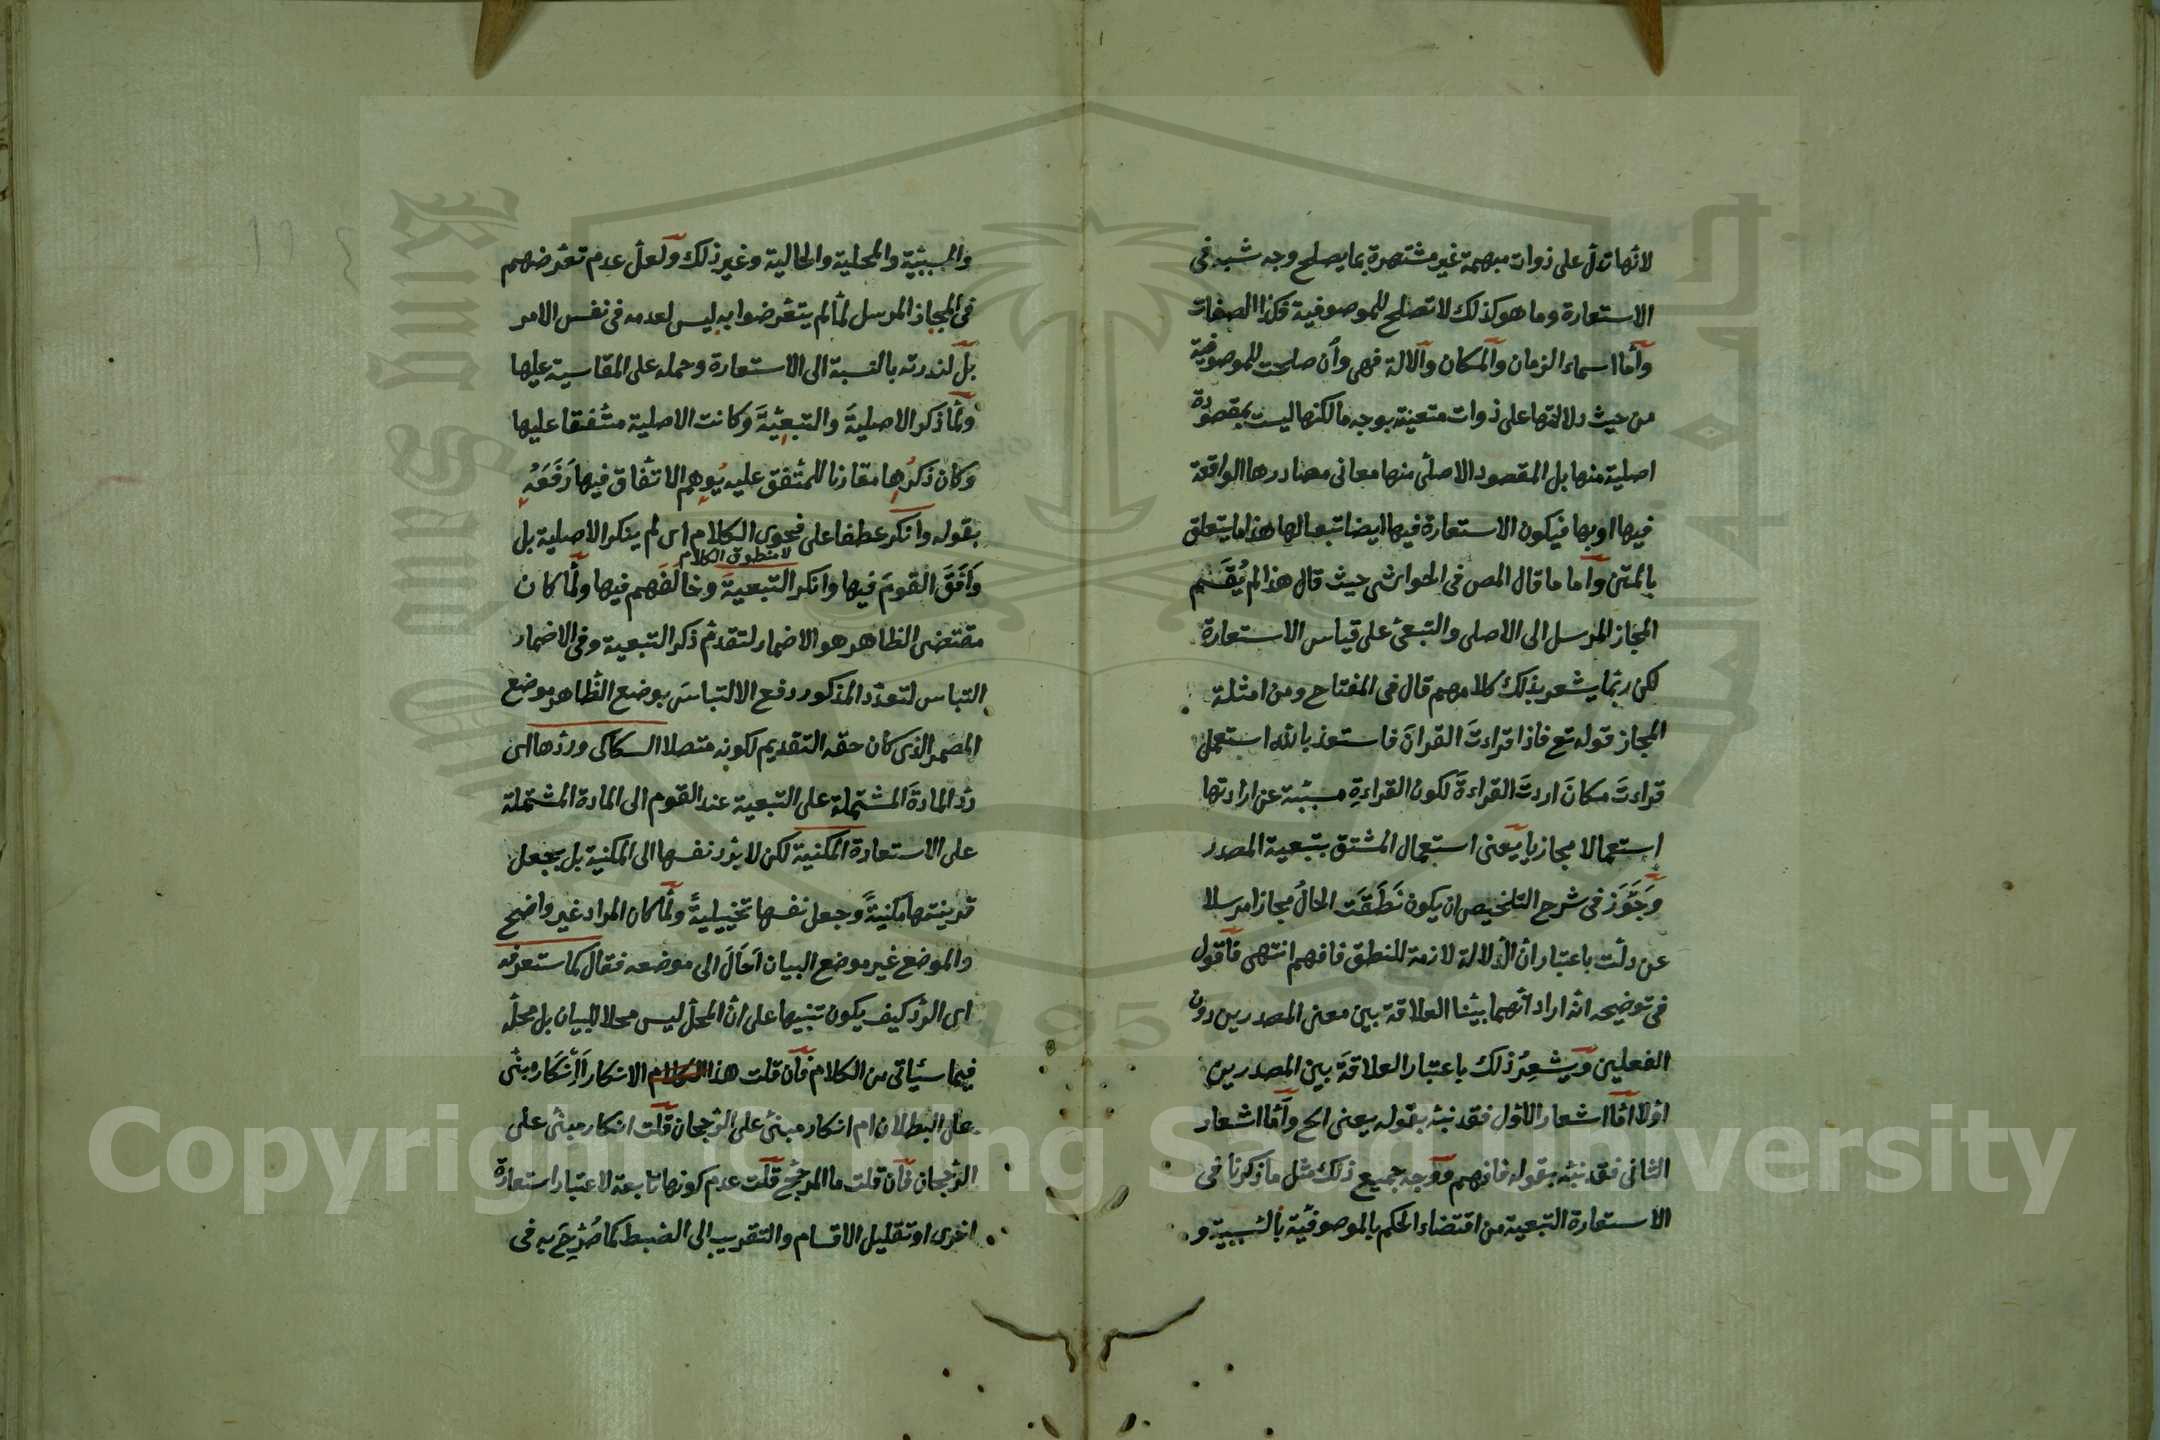 لانها تدل على ذوات مبهمة غير مشتهرة بما يصلح وجه شبه في
الاستعارة وما هو كذلك لا تصلح للموصوفية فكذا الصفات
وأما اسماء الزمان والمكان والآلة فهى وان صلحت للموصوفية
من حيث دلالتها على ذوات متعينة بوجه ما لكنها ليست بمقصودة
اصلية منها بل المقصود الاصلى منها معانى مصادرها الواقعة
فيها او بها فيكون الاستعارة فيها ايضا تبعا لها هذا ما يتعلق
بالمتن وأما ما قال المص في الحواشى حيث قال هذا لم يُقَسَّم
المجاز المرسل الى الاصلى والتبعى على قياس الاستعارة
لكن ربما يشعر بذلك كلامهم قال في المفتاح ومن امثلة
المجاز قوله تع فاذا قراءتَ القرانَ فاستعذ بالله استعمل
قراءتَ مكانَ اردتَ القراءةَ لكون القراءةِ مسببة عن ارادتها
استعمالا مجازيا يعنى استعمال المشتق بتبعية المصدر
وجَوَّزَ في شرح التلخيص ان يكون نَطَقَت الحالُ مجازا مرسلا
عن دلّت باعتبار انّ الدّلالة لازمة للنطق فافهم انتهى فاقول
في توضيحه انه اراد انهما بيّنا العلاقة بين معنى المصدرين دون
الفعلين ويشعِرُ ذلك باعتبار العلاقةَ بين المصدرين
اوّلا امّا اشعار الاوّل فقد نبّه بقوله يعنى الخ وأمّا اشعار
الثانى فقد نبّه بقوله فافهم ووجه جميع ذلك مثل ما ذكرنا في
الاستعارة التبعية من اقتضاء الحكم بالموصوفيّة بالسّببية و
والمسببيّة والمحلية والحالية وغير ذلك ولعلّ عدم تعرّضهم
في المجاز المرسل لمّا لم يتعرّضوا به ليس لعدمه في نفس الامر
بل لندرته بالنسبة الى الاستعارة وحمله على المقايسة عليها
ولمّا ذكر الاصليةَ والتبعيّةَ وكانت الاصلية متّفقا عليها
وكان ذكرُها مقارنا للمتّفق عليه يُوهِم الاتّفاق فيها رَفَعَهُ
بقوله وانكر عطفا على فحوى الكلام اى لم ينكر الاصلية بل
لا منطوق الكلام
وَافَقَ القومَ فيها وانكر التبعيةَ وخالَفَهم فيها ولمّا كان
مقتضى الظاهر هو الاضمار لتقدّم ذكر التبعية وفي الاضمار
التباس لتعدّد المذكور دفع الالتباسَ بوضع الظّاهر موضع
المضمر الذى كان حقه التقديم لكونه متصلا السكاكى وردّها اى
ردّ المادةَ المشتملة على التبعية عند القوم الى المادة المشتملة
على الاستعارة المكنية لكن لا بردّ نفسها الى المكنية بل بجعل
قرينتها مكنيةً وجعل نفسها تخييليةً ولمّا كان المراد غير واضح
والموضع غير موضع البيان اَحَالَ الى موضعه فقال كما ستعرفه
اى الردّ كيف يكون تنبيها على انّ المحلّ ليس محلا للبيان بل محلّه
فيما سيأتى من الكلام فان قلت هذا الكلام الانكار أإنكار مبنى
على البطلان ام انكار مبنىّ على الرّجحان قلت انكار مبنىّ على
الرّجحان فان قلت ما المرجّح قلت عدم كونها تابعة لاعتبار استعارة
اخرى او تقليل الاقسام والتقريب الى الضبط كما صُرِّحَ به في
Copyright © King Saud University
1957